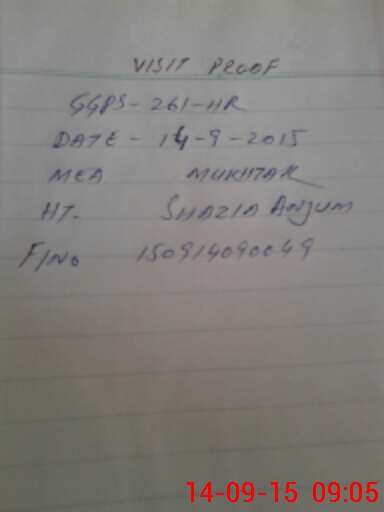 VISIT PROOF
GGPS-261-HR
DATE - 14-9-2015
MEA MUKHTAR
HT. SHAZIA ANJUM
F/No 150914090049
14-09-15 09:05